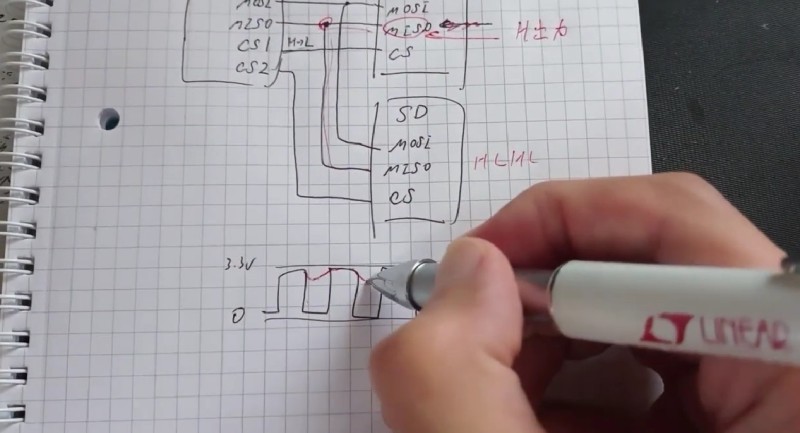 MOSI
MISO
CS1 H→L
CS2
MOSI
MISO
CS
H出力
SD
MOSI
MISO
CS
HLHL
3.3V
0
LT LINEAR